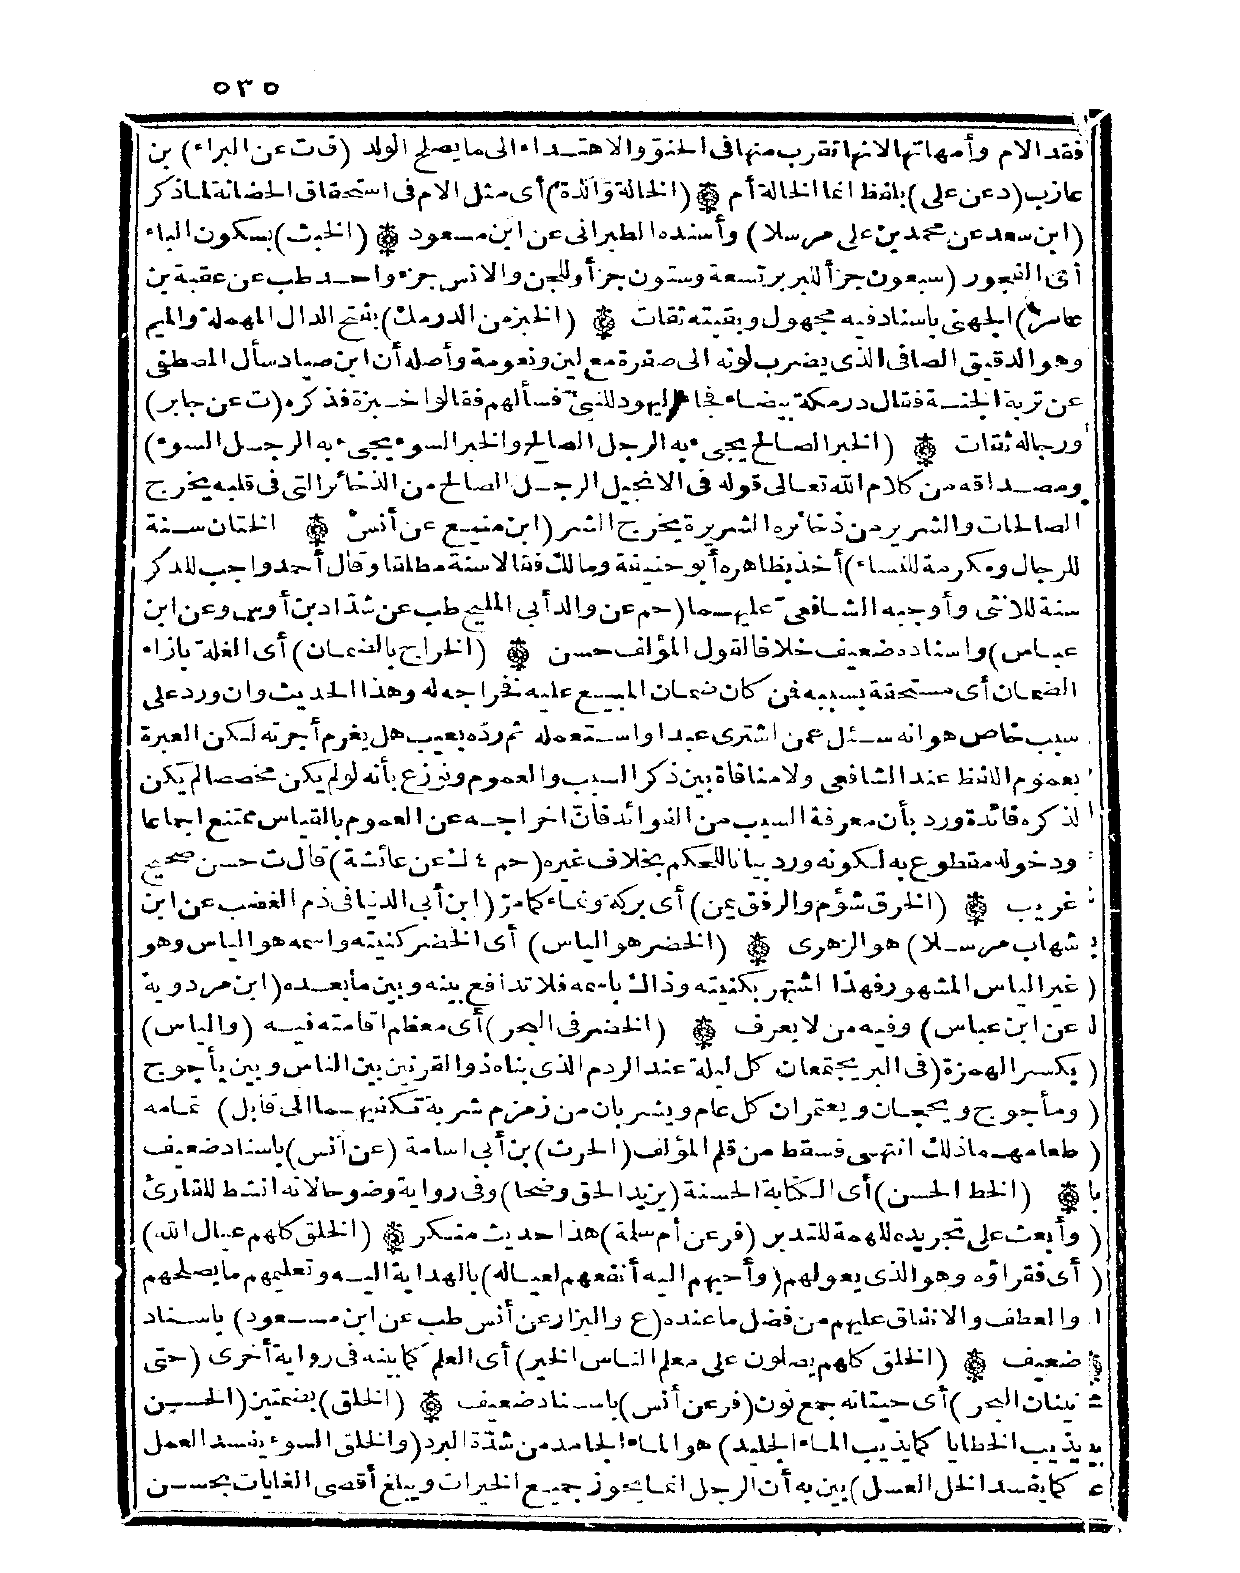 ٥٣٥
فقد الام وأمهاتها لانها تقرب منها فى الحنو والاهتداء الى ما يصلح الولد (ق ت عن البراء) بن
عازب (د عن على) بلفظ انما الخالة أم ۞ (الخالة والدة) أى مثل الام فى استحقاق الحضانة لما ذكر
(ابن سعد عن محمد بن على مرسلا) وأسنده الطبرانى عن ابن مسعود ۞ (الخبث) بسكون الباء
أى الفجور (سبعون جزأ للبربر تسعة وستون جزأ وللجن والانس جزء واحد طب عن عقبة بن
عامر) الجهنى باسناد فيه مجهول وبقيته ثقات ۞ (الخبز من الدرمك) بفتح الدال المهملة والميم
وهو الدقيق الصافى الذى يضرب لونه الى صفرة مع لين ونعومة وأصله أن ابن صياد سأل المصطفى
عن تربة الجنة فقال درمكة بيضاء فجاء اليهود للنبىّ فسألهم فقالوا خبزة فذكره (ت عن جابر)
ورجاله ثقات ۞ (الخبر الصالح يجىء به الرجل الصالح والخبر السوء يجىء به الرجل السوء)
ومصداقه من كلام الله تعالى قوله فى الانجيل الرجل الصالح من الذخائر التى فى قلبه يخرج
الصالحات والشرير من ذخائره الشريرة يخرج الشر (ابن منيع عن أنس ۞ الختان سنة
للرجال ومكرمة للنساء) أخذ بظاهره أبو حنيفة ومالك فقالا سنة مطلقا وقال أحمد واجب للذكر
سنة للانثى وأوجبه الشافعىّ عليهما (حم عن والد أبى المليح طب عن شداد بن أوس وعن ابن
عباس) واسناده ضعيف خلافا لقول المؤلف حسن ۞ (الخراج بالضمان) أى الغلة بازاء
الضمان أى مستحقة بسببه فمن كان ضمان المبيع عليه فخراجه له وهذا الحديث وان ورد على
سبب خاص هو انه سئل عمن اشترى عبدا واستعمله ثم ردّه بعيب هل يغرم أجرته لكن العبرة
بعموم اللفظ عند الشافعى ولا منافاة بين ذكر السبب والعموم ونوزع بأنه لو لم يكن مخصصا لم يكن
لذكره فائدة ورد بأن معرفة السبب من الفوائد فانّ اخراجه عن العموم بالقياس ممتنع اجماعا
ودخوله مقطوع به لكونه ورد بيانا للحكم بخلاف غيره (حم ٤ ك عن عائشة) قال ت حسن صحيح
غريب ۞ (الخرق شؤم والرفق يمن) أى بركة ونماء كما مرّ (ابن أبى الدنيا فى ذم الغضب عن ابن
شهاب مرسلا) هو الزهرى ۞ (الخضر هو الياس) أى الخضر كنيته واسمه هو الياس وهو
غير الياس المشهور فهذا اشتهر بكنيته وذاك باسمه فلا تدافع بينه وبين ما بعده (ابن مردوية
عن ابن عباس) وفيه من لا يعرف ۞ (الخضر فى البحر) أى معظم اقامته فيه (والياس)
بكسر الهمزة (فى البر يجتمعان كل ليلة عند الردم الذى بناه ذو القرنين بين الناس وبين يأجوج
ومأجوج ويحجان ويعتمران كل عام ويشربان من زمزم شربة تكفيهما الى قابل) تمامه
طعامهما ذلك انتهى فسقط من قلم المؤلف (الحرث) بن أبى اسامة (عن أنس) باسناد ضعيف
۞ (الخط الحسن) أى الكتابة الحسنة (يزيد الحق وضحا) وفى رواية وضوحا لانه انشط للقارئ
وأبعث على تجريده للهمة للتدبر (فر عن أم سلة) هذا حديث منكر ۞ (الخلق كلهم عيال الله)
أى فقراؤه وهو الذى يعولهم (وأحبهم اليه أنفعهم لعياله) بالهداية اليه وتعليمهم ما يصلحهم
والعطف والانفاق عليهم من فضل ما عنده (ع والبزار عن أنس طب عن ابن مسعود) باسناد
ضعيف ۞ (الخلق كلهم يصلون على معلم الناس الخير) أى العلم كما بينه فى رواية أخرى (حتى
نينان البحر) أى حيتانه جمع نون (فر عن أنس) باسناد ضعيف ۞ (الخلق) بضمتين (الحسن
يذيب الخطايا كما يذيب الماء الجليد) هو الماء الجامد من شدّة البرد (والخلق السوء يفسد العمل
كما يفسد الخل العسل) بين به أن الرجل انما يحوز جميع الخيرات ويبلغ أقصى الغايات بحسن